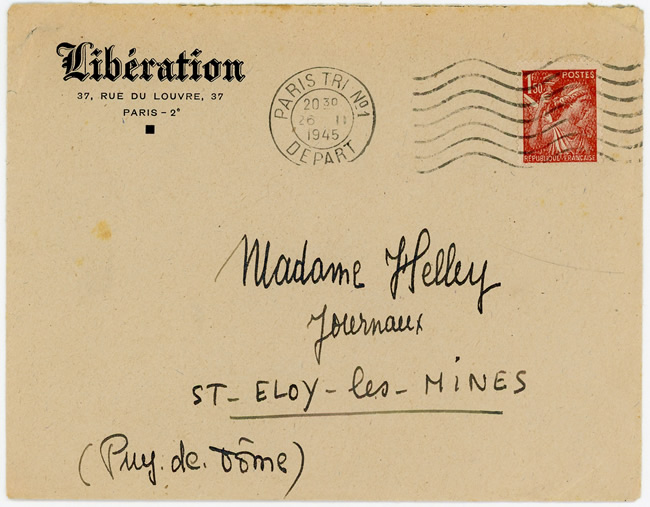 Libération
37, RUE DU LOUVRE, 37
PARIS - 2e
PARIS TRI No1
20 30
26 II
1945
DEPART
POSTES
1F50
RÉPUBLIQUE FRANÇAISE
Madame Helley
Journaux
ST-ELOY-les-MINES
(Puy.de.Dôme)